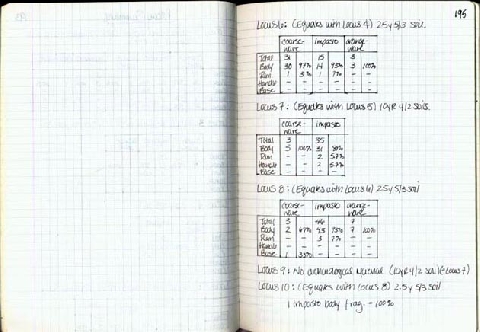 195
Locus 6: (Equates with Locus 4) 2.5y 5/3 soil.
coarse-ware impasto orange-ware
Total 31 15 3
Body 30 97% 14 93% 3 100%
Rim 1 3% 1 7% - -
Handle - - - - - -
Base - - - - - -
Locus 7: (Equates with Locus 5) 10yR 4/2 soils.
coarse-ware impasto
Total 3 35
Body 3 100% 31
Rim - - 2 5.7%
Handle - - 2 5.7%
Base - - - -
Locus 8: (Equates with Locus 6) 2.5y 5/3 soil
coarse-ware impasto orange-ware
Total 3 7
Body 2 67% 93% 7 100%
Rim - - 3 7% - -
Handle - - - - - -
Base 1 33% - - - -
Locus 9: No archaeological material (10yR 4/2 soil @ Locus 7)
Locus 10: (Equates with Locus 8) 2.5y 5/3 soil
1 impasto body frag - 100%